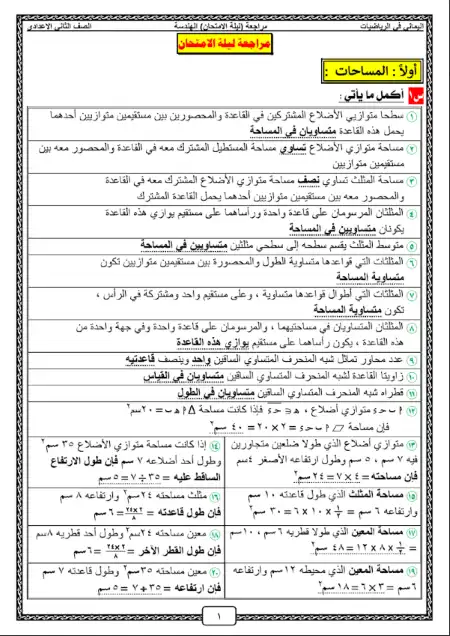 اليماني في الرياضيات مراجعة (ليلة الامتحان) الهندسة الصف الثاني الاعدادي
مراجعة ليلة الامتحان
أولاً : المساحات :
س١ أكمل ما يأتي :
١ سطحا متوازيي الأضلاع المشتركين في القاعدة والمحصورين بين مستقيمين متوازيين أحدهما
يحمل هذه القاعدة متساويان في المساحة
٢ مساحة متوازي الأضلاع تساوي مساحة المستطيل المشترك معه في القاعدة والمحصور معه بين
مستقيمين متوازيين
٣ مساحة المثلث تساوي نصف مساحة متوازي الأضلاع المشترك معه في القاعدة
والمحصور معه بين مستقيمين متوازيين أحدهما يحمل القاعدة المشترك
٤ المثلثان المرسومان على قاعدة واحدة ورأساهما على مستقيم يوازي هذه القاعدة
يكونان متساويين في المساحة
٥ متوسط المثلث يقسم سطحه إلى سطحي مثلثين متساويين في المساحة
٦ المثلثات التي قواعدها متساوية الطول والمحصورة بين مستقيمين متوازيين تكون
متساوية المساحة
٧ المثلثات التي أطوال قواعدها متساوية ، وعلى مستقيم واحد ومشتركة في الرأس ،
تكون متساوية المساحة
٨ المثلثان المتساويان في مساحتيهما ، والمرسومان على قاعدة واحدة وفي جهة واحدة من
هذه القاعدة ، يكون رأساهما على مستقيم يوازي هذه القاعدة
٩ عدد محاور تماثل شبه المنحرف المتساوي الساقين واحد وينصف قاعدتيه
١٠ زاويتا القاعدة لشبه المنحرف المتساوي الساقين متساويان في القياس
١١ قطراه شبه المنحرف المتساوي الساقين متساويان في الطول
١٢ ا ب ح ء متوازي أضلاع ، ه ∈ ح ء فإذا كانت مساحة Δ ا ه ب = ٢٠سم٢
فإن مساحة ▱ ا ب ح ء = ٢٠ × ٢ = ٤٠ سم٢
١٣ متوازي أضلاع الذي طولا ضلعين متجاورين
فيه ٧ سم ، ٥ سم وطول ارتفاعه الأصغر ٤سم
فإن مساحته = ٤ × ٧ = ٢٤ سم٢
١٤ إذا كانت مساحة متوازي الأضلاع ٣٥ سم٢
وطول أحد أضلاعه ٧ سم فإن طول الارتفاع
الساقط عليه = ٣٥ ÷ ٧ = ٥ سم
١٥ مساحة المثلث الذي طول قاعدته ١٠ سم
وارتفاعه ٦ سم = ١/٢ × ١٠ × ٦ = ٣٠ سم٢
١٦ مثلث مساحته ٢٤سم٢ وارتفاعه ٨ سم
فإن طول قاعدته = ٢×٢٤/٨ = ٦ سم
١٧ مساحة المعين الذي طولا قطريه ٦سم ، ١٠سم
= ١/٢ × ٨ × ١٢ = ٤٨ سم٢
١٨ معين مساحته ٢٤سم٢ وطول أحد قطريه ٨سم
فإن طول القطر الآخر = ٢×٢٤/٨ = ٦ سم
١٩ مساحة المعين الذي محيطه ١٢ سم وارتفاعه
٦سم = ٣ × ٦ = ١٨ سم٢
٢٠ معين مساحته ٣٥سم٢ وطول قاعدته ٧ سم
فإن ارتفاعه = ٣٥ ÷ ٧ = ٥ سم
١